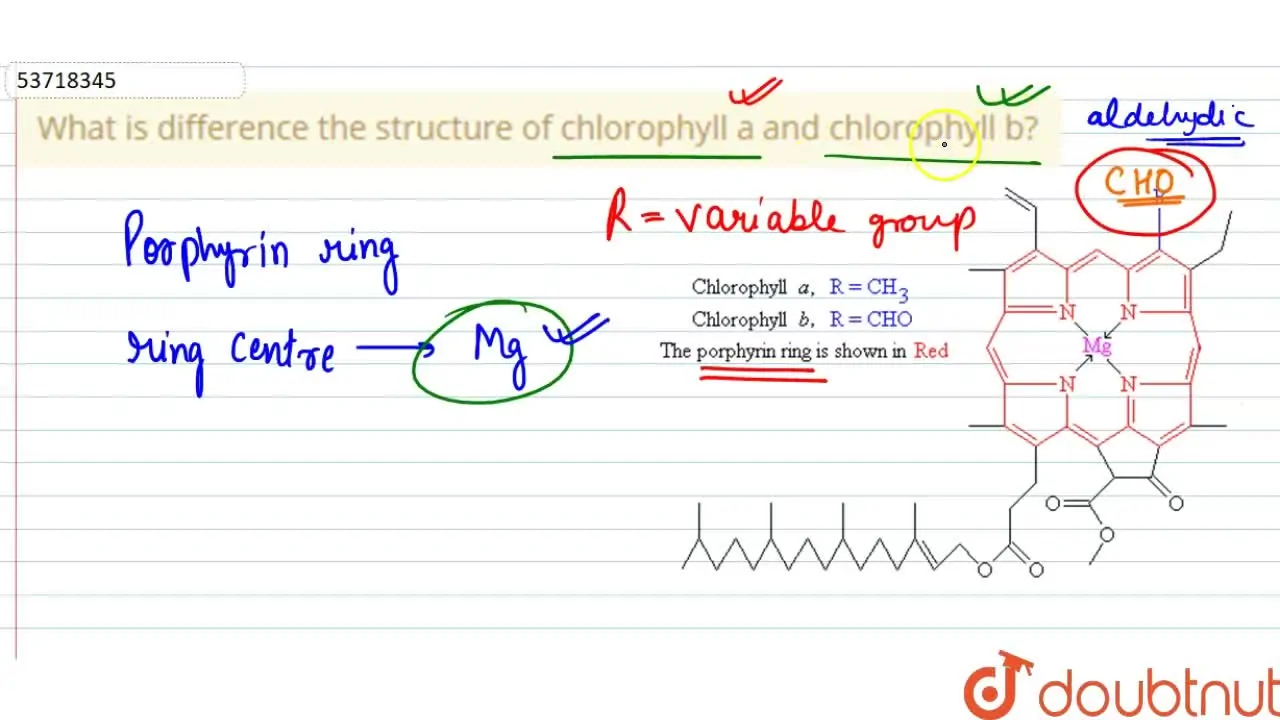 53718345
What is difference the structure of chlorophyll a and chlorophyll b?
aldehydic
CHO
R = variable group
Porphyrin ring
Chlorophyll a, R = CH3
Chlorophyll b, R = CHO
The porphyrin ring is shown in Red
ring centre → Mg
N N
Mg
N N
O O
O
O O
doubtnut